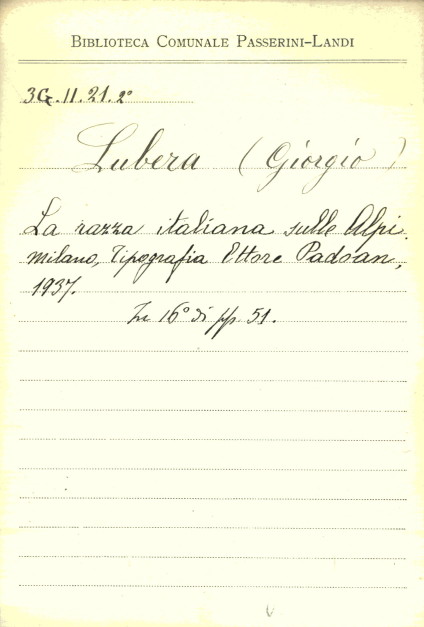 BIBLIOTECA COMUNALE PASSERINI-LANDI
3G.II.21.2°
Lubera (Giorgio)
La razza italiana sulle Alpi.
Milano, Tipografia Ettore Padoan,
1937.
In 16° di pp. 51.